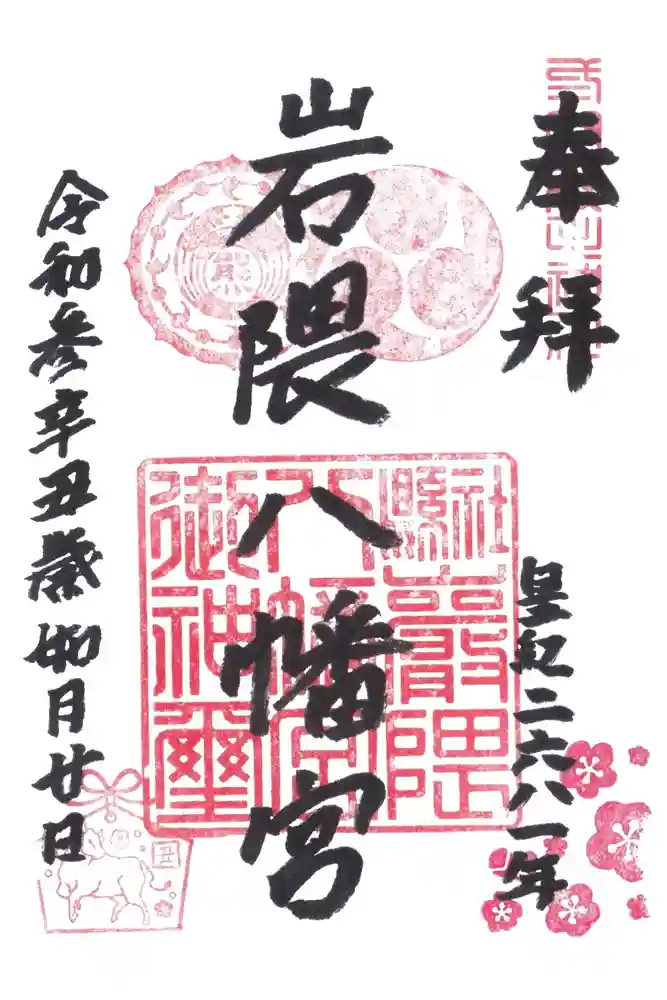 奉拝
皇紀二六八一年
岩隈八幡宮
縣社
巖隈
八幡宮
御神璽
令和参辛丑歳如月廿日
丑